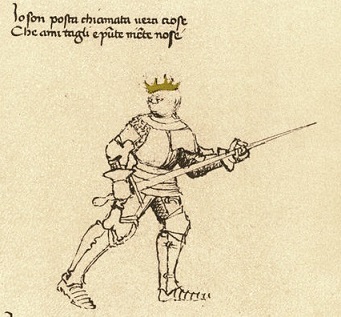 Io son posta chiamata vera crose
Che ami tagli e pūte niēte nose